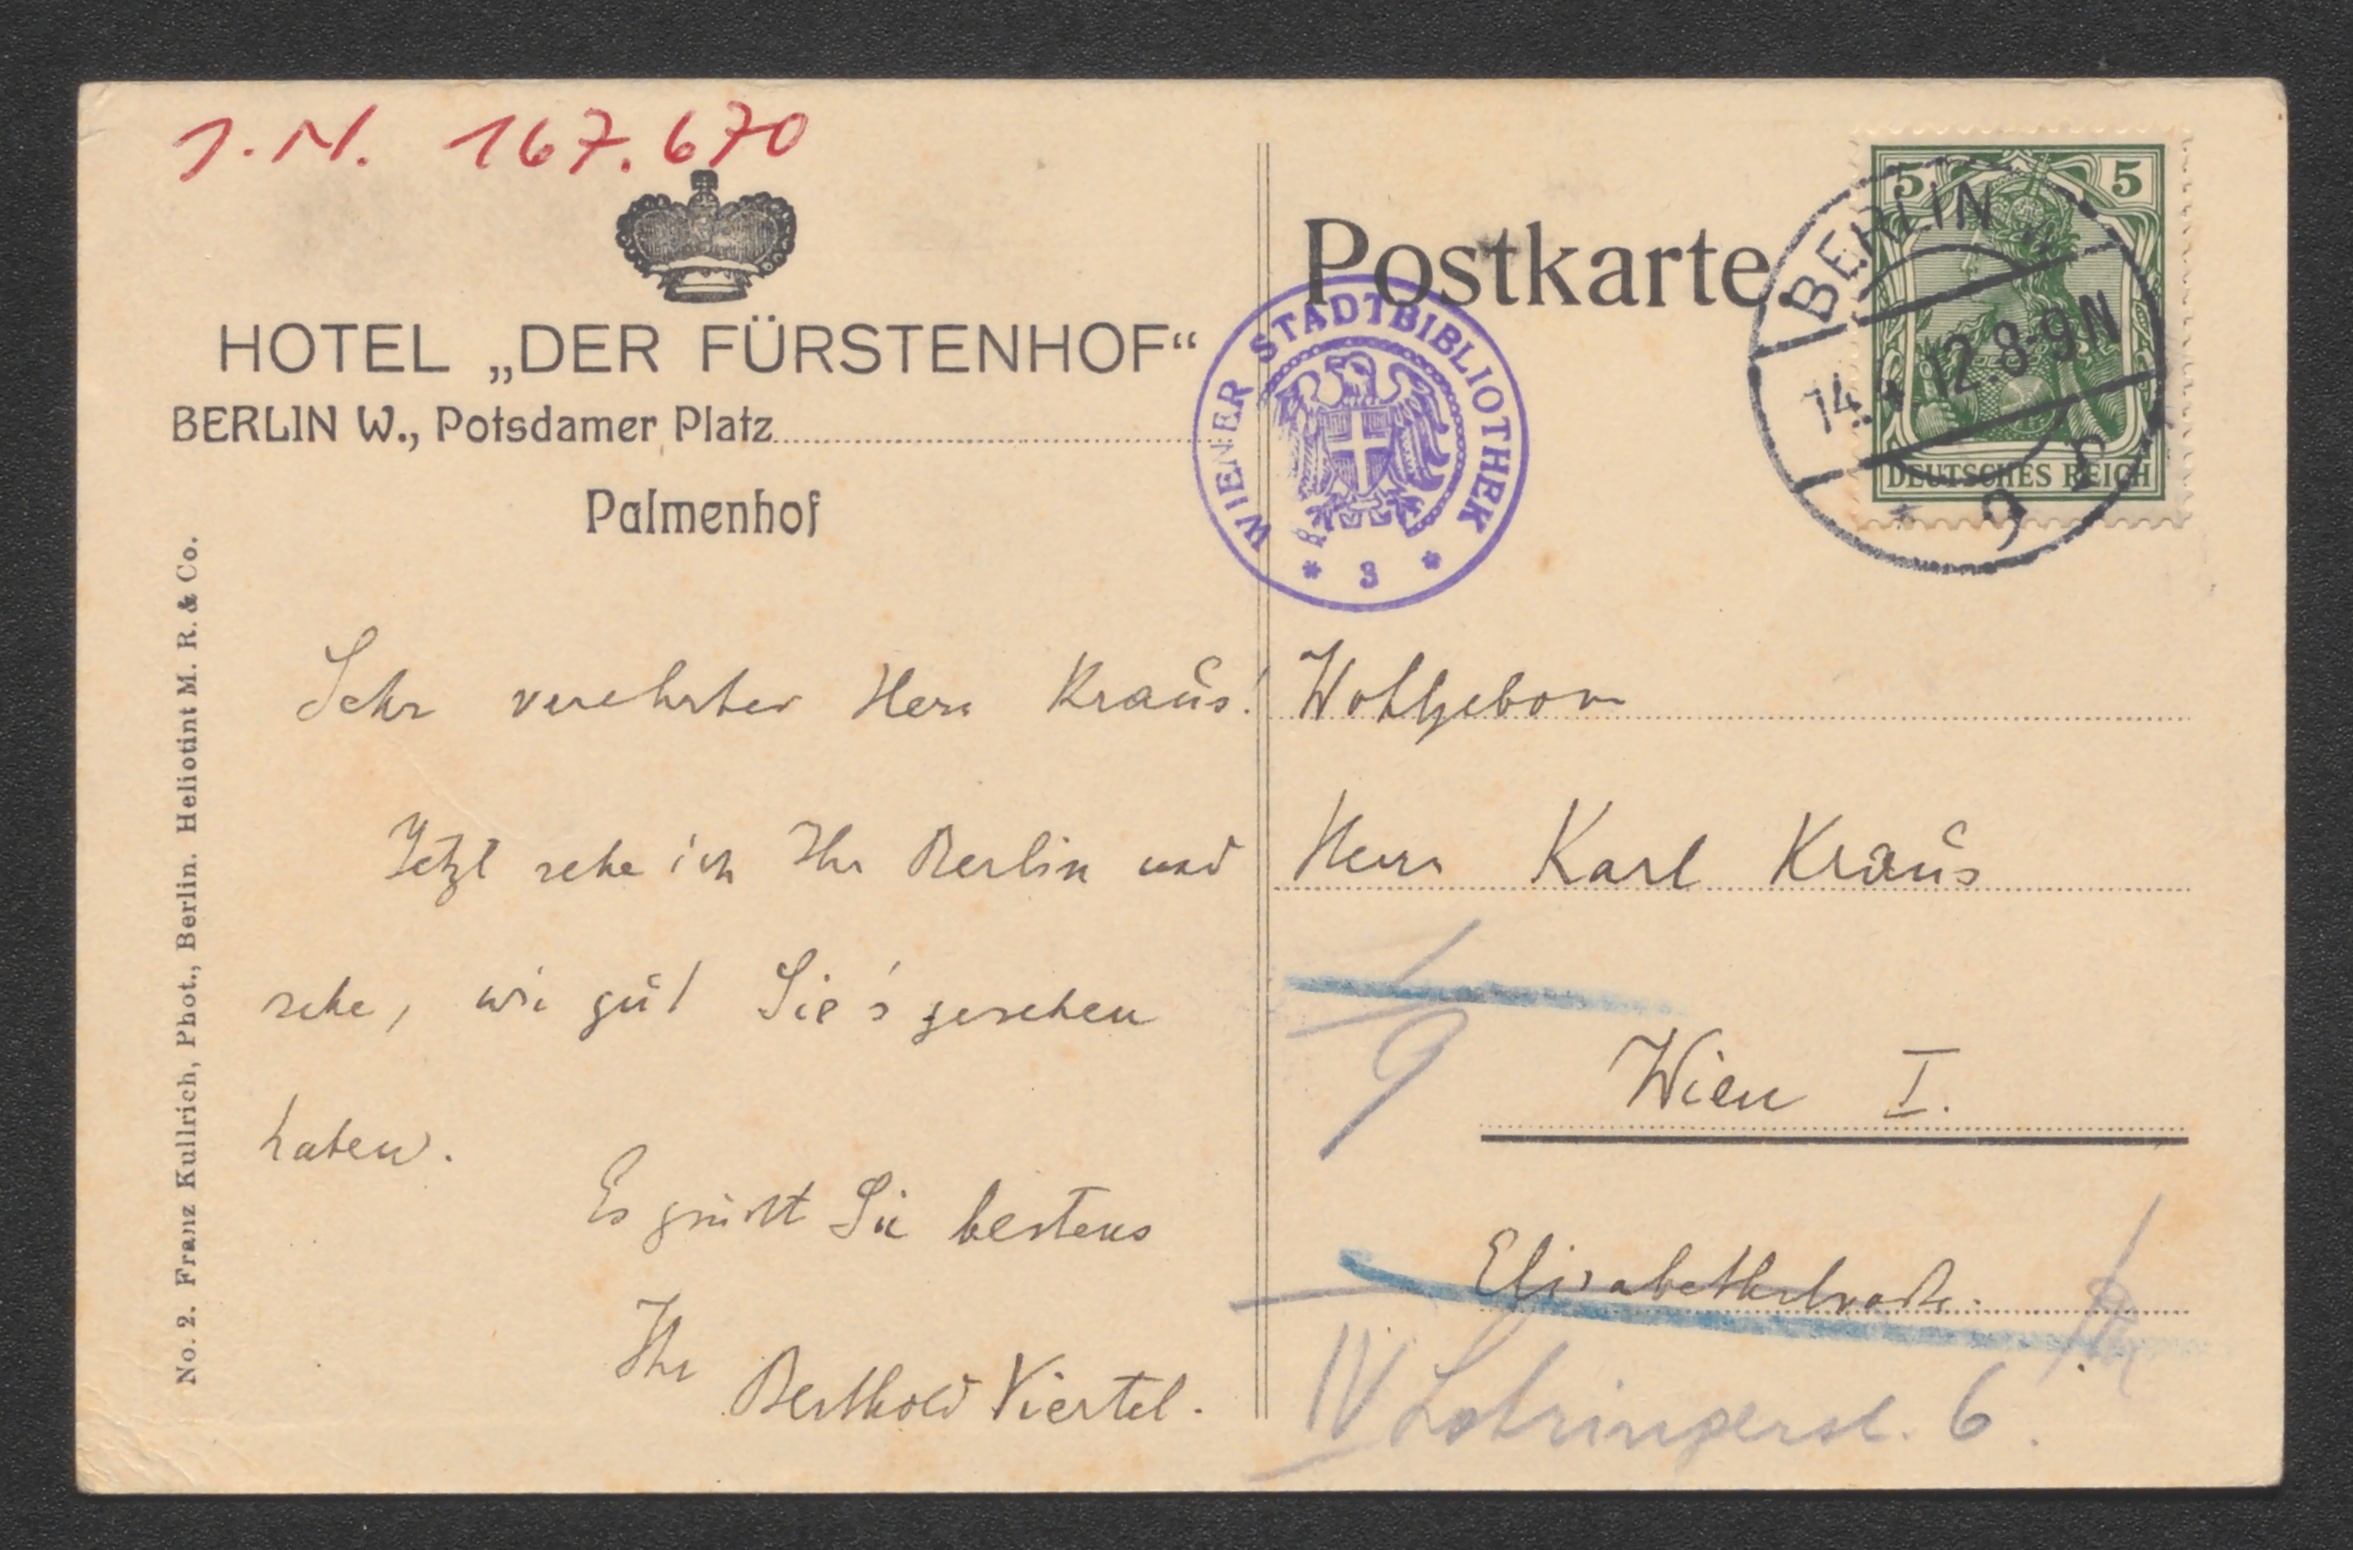 I.N. 167.670
HOTEL „DER FÜRSTENHOF“
BERLIN W., Potsdamer Platz
Palmenhof
No. 2. Franz Kullrich, Phot., Berlin. Heliotint M. R. & Co.
Sehr verehrter Herr Kraus!
Jetzt sehe ich Ihr Berlin und
sehe, wie gut Sie's gesehen
haben.
Es grüßt Sie bestens
Ihr
Berthold Viertel.
Postkarte.
WIENER STADTBIBLIOTHEK
* 3 *
5 5
DEUTSCHES REICH
BERLIN W
14. 12. 8-9N
* 9
Wohlgeborn
Herrn Karl Kraus
9
Wien I.
Elisabethstraße.
IV Lothringerst. 6.